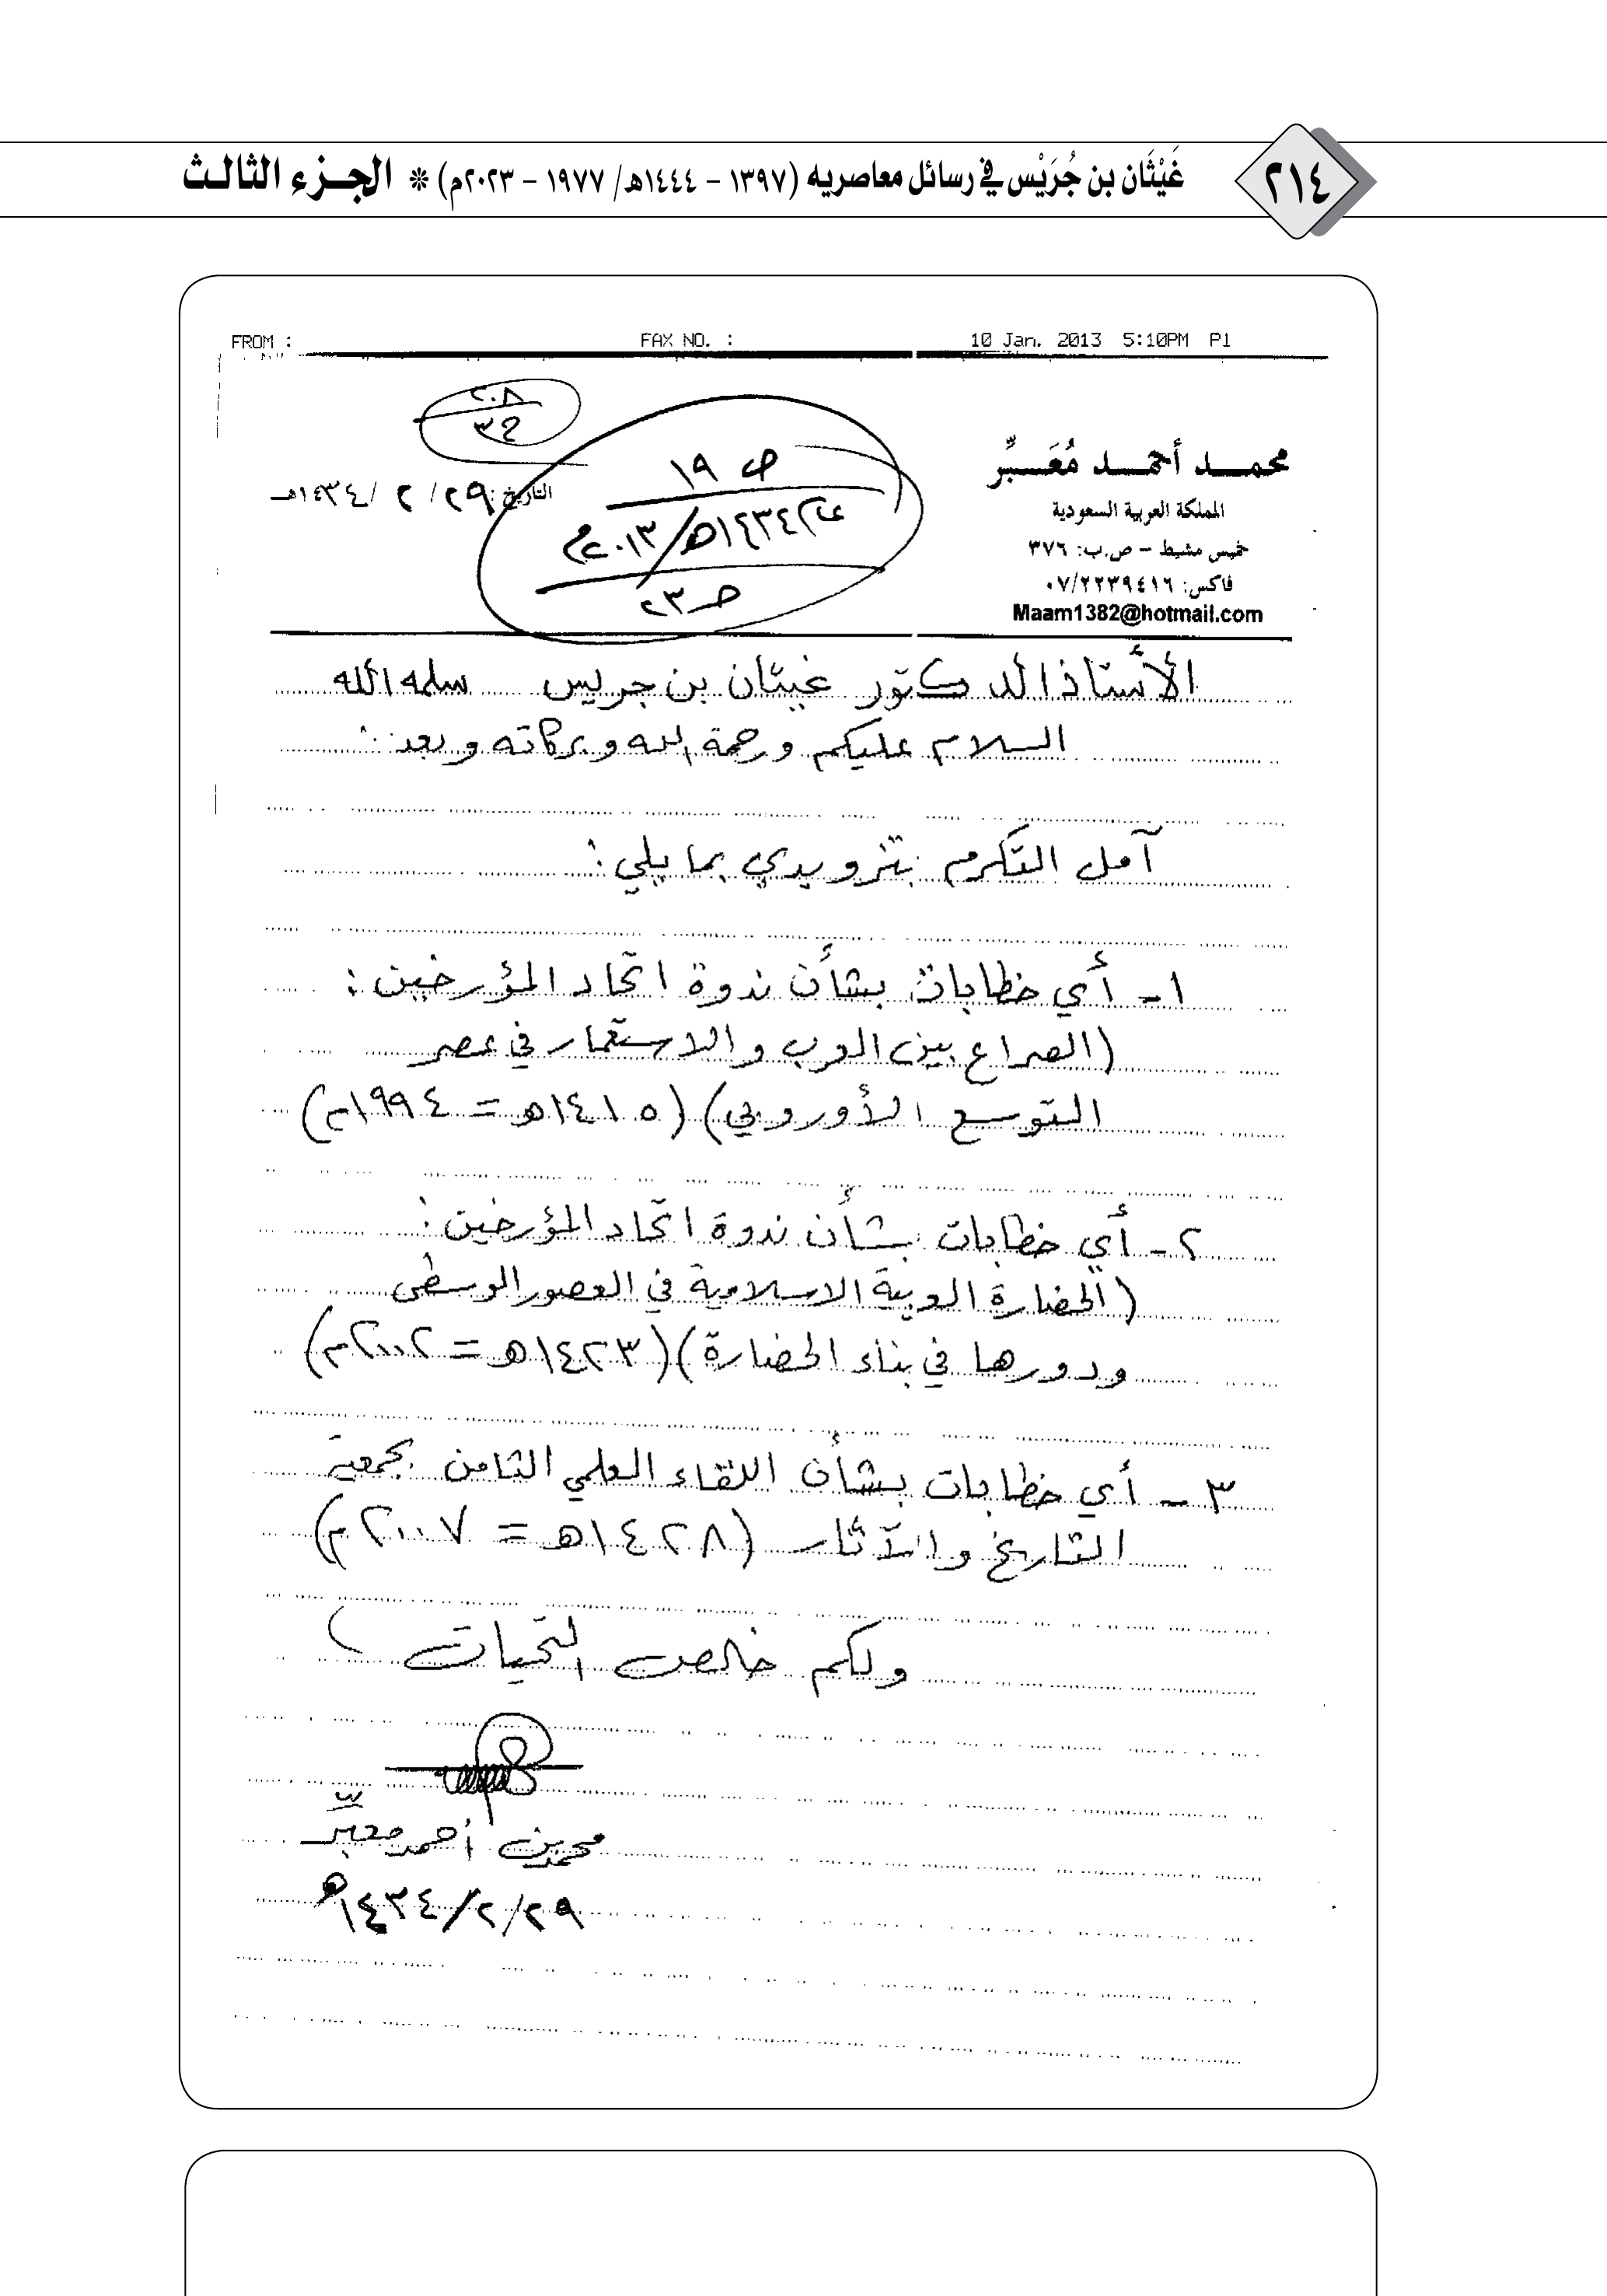 ٢١٤
غَيْثَان بن جُرَيْس في رسائل معاصريه (١٣٩٧ - ١٤٤٤هـ/ ١٩٧٧ - ٢٠٢٣م) * الجـزء الثالـث
FROM : FAX NO. : 10 Jan. 2013 5:10PM P1
محمـد أحمـد مُعَـبِّر
المملكة العربية السعودية
خميس مشيط - ص.ب: ٣٧٦
فاكس: ٠٧/٢٢٣٩٤١٦
Maam1382@hotmail.com
ص ١٩
١٤٣٤هـ/٢٠١٣م
ص ٢٣
٢٠٨
التاريخ: ٢٩/ ٢ /١٤٣٤هـ
الأستاذ الدكتور غيثان بن جريس سلمه الله
السلام عليكم ورحمة الله وبركاته وبعد:
آمل التكرم بتزويدي بما يلي:
١- أي خطابات بشأن ندوة اتحاد المؤرخين:
(الصراع بين العرب والاستعمار في عصر
التوسع الأوروبي) (١٤١٥هـ = ١٩٩٤م)
٢- أي خطابات بشأن ندوة اتحاد المؤرخين:
(الحضارة العربية الاسلامية في العصور الوسطى
ودورها في بناء الحضارة) (١٤٢٣هـ = ٢٠٠٢م)
٣- أي خطابات بشأن اللقاء العلمي الثامن بجمعية
التاريخ والآثار (١٤٢٨هـ = ٢٠٠٧م)
ولكم خالص التحيات
محمد بن أحمد معبّر
٢٩/٢/١٤٣٤هـ